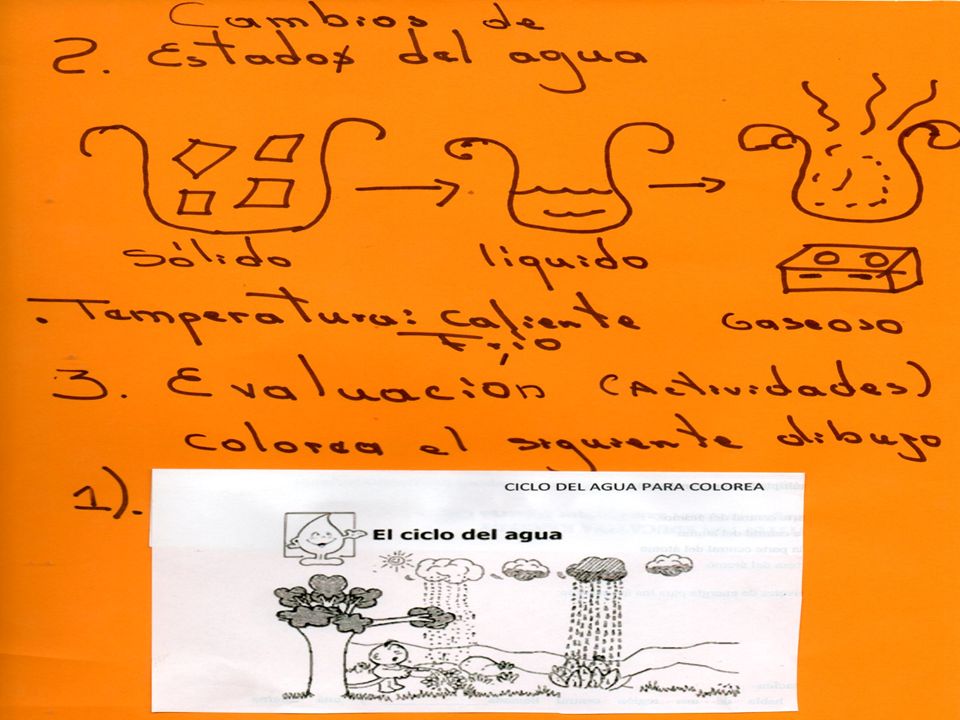 Cambios de
2. Estados del agua
Sólido líquido
. Temperatura: Caliente Gaseoso
Frío
3. Evaluación (Actividades)
Colorea el siguiente dibujo
1).
CICLO DEL AGUA PARA COLOREA
El ciclo del agua